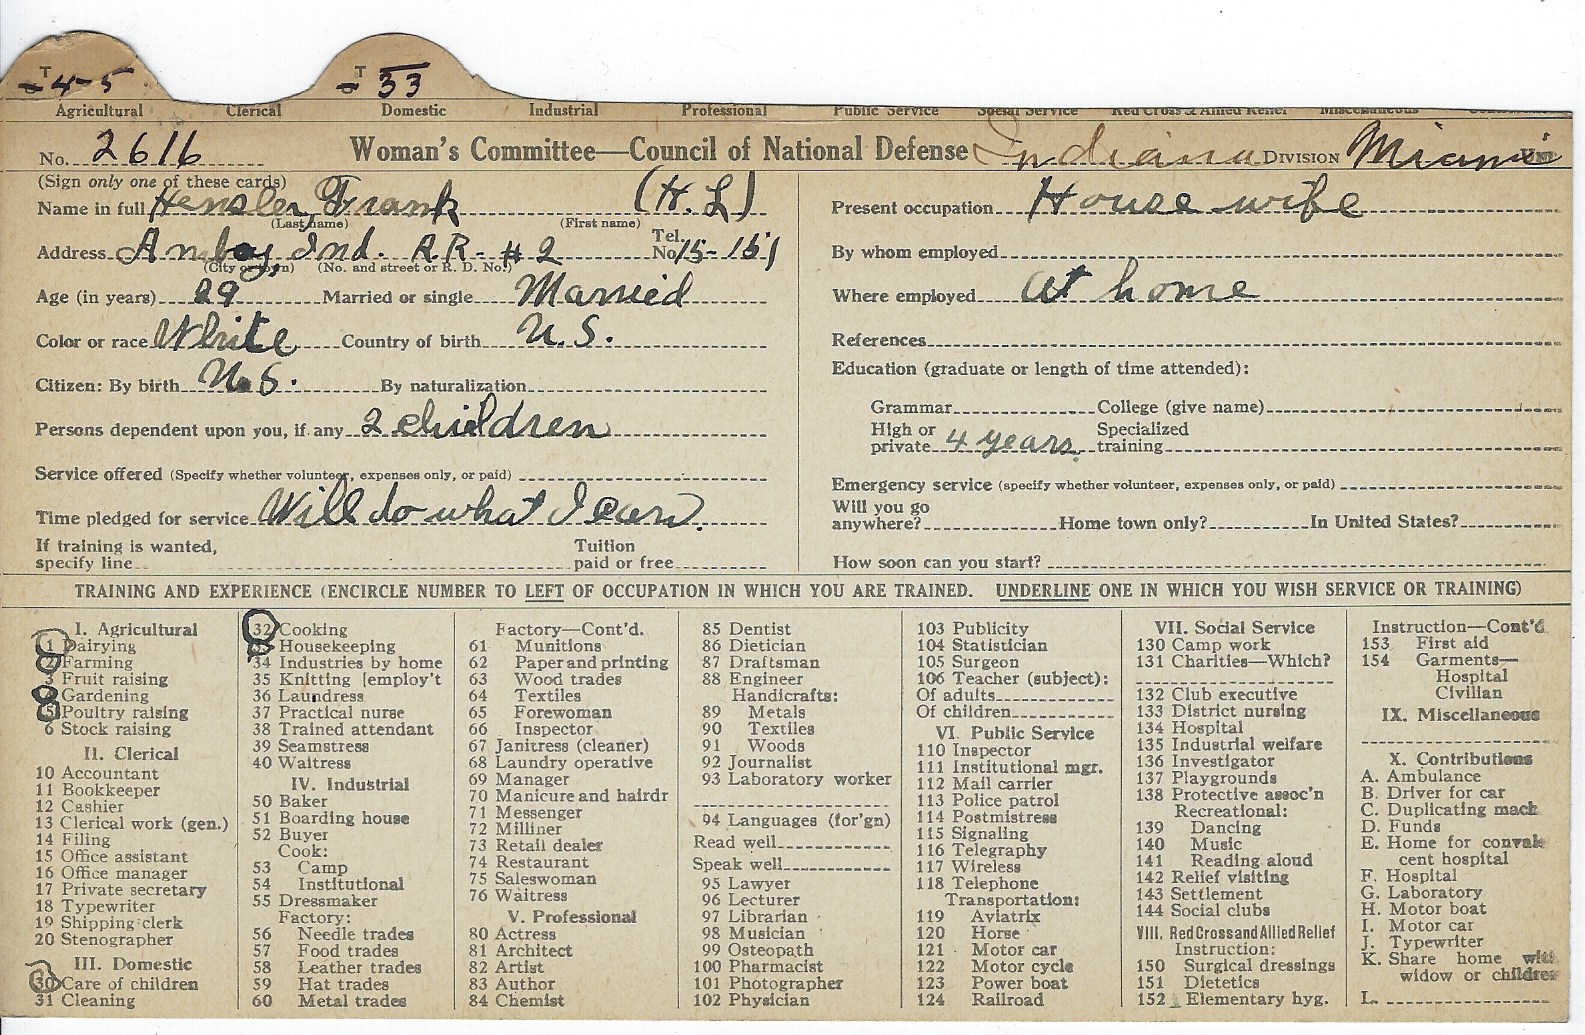 T 4-5 T 33
Agricultural Clerical Domestic Industrial Professional Public Service Social Service Red Cross & Allied Relief Miscellaneous
No. 2616 Woman's Committee—Council of National Defense Indiana DIVISION Miami Unit
(Sign only one of these cards)
Name in full Hensler, Frank (H. L)
(Last name) (First name)
Address Amboy, Ind. R R- # 2 Tel. No. 15-151
(City or town) (No. and street or R. D. No.)
Age (in years) 29 Married or single Married
Color or race White Country of birth U. S.
Citizen: By birth U. S. By naturalization
Persons dependent upon you, if any 2 children
Service offered (Specify whether volunteer, expenses only, or paid)
Time pledged for service Will do what I can.
If training is wanted, specify line Tuition paid or free
Present occupation House wife
By whom employed
Where employed at home
References
Education (graduate or length of time attended):
Grammar College (give name)
High or private 4 years. Specialized training
Emergency service (specify whether volunteer, expenses only, or paid)
Will you go anywhere? Home town only? In United States?
How soon can you start?
TRAINING AND EXPERIENCE (ENCIRCLE NUMBER TO LEFT OF OCCUPATION IN WHICH YOU ARE TRAINED. UNDERLINE ONE IN WHICH YOU WISH SERVICE OR TRAINING)
I. Agricultural
1 Dairying
2 Farming
3 Fruit raising
4 Gardening
5 Poultry raising
6 Stock raising
II. Clerical
10 Accountant
11 Bookkeeper
12 Cashier
13 Clerical work (gen.)
14 Filing
15 Office assistant
16 Office manager
17 Private secretary
18 Typewriter
19 Shipping clerk
20 Stenographer
III. Domestic
30 Care of children
31 Cleaning
32 Cooking
33 Housekeeping
34 Industries by home
35 Knitting [employ't
36 Laundress
37 Practical nurse
38 Trained attendant
39 Seamstress
40 Waitress
IV. Industrial
50 Baker
51 Boarding house
52 Buyer
Cook:
53 Camp
54 Institutional
55 Dressmaker
Factory:
56 Needle trades
57 Food trades
58 Leather trades
59 Hat trades
60 Metal trades
Factory—Cont'd.
61 Munitions
62 Paper and printing
63 Wood trades
64 Textiles
65 Forewoman
66 Inspector
67 Janitress (cleaner)
68 Laundry operative
69 Manager
70 Manicure and hairdr
71 Messenger
72 Milliner
73 Retail dealer
74 Restaurant
75 Saleswoman
76 Waitress
V. Professional
80 Actress
81 Architect
82 Artist
83 Author
84 Chemist
85 Dentist
86 Dietician
87 Draftsman
88 Engineer
Handicrafts:
89 Metals
90 Textiles
91 Woods
92 Journalist
93 Laboratory worker
94 Languages (for'gn)
Read well
Speak well
95 Lawyer
96 Lecturer
97 Librarian
98 Musician
99 Osteopath
100 Pharmacist
101 Photographer
102 Physician
103 Publicity
104 Statistician
105 Surgeon
106 Teacher (subject):
Of adults
Of children
VI. Public Service
110 Inspector
111 Institutional mgr.
112 Mail carrier
113 Police patrol
114 Postmistress
115 Signaling
116 Telegraphy
117 Wireless
118 Telephone
Transportation:
119 Aviatrix
120 Horse
121 Motor car
122 Motor cycle
123 Power boat
124 Railroad
VII. Social Service
130 Camp work
131 Charities—Which?
132 Club executive
133 District nursing
134 Hospital
135 Industrial welfare
136 Investigator
137 Playgrounds
138 Protective assoc'n
Recreational:
139 Dancing
140 Music
141 Reading aloud
142 Relief visiting
143 Settlement
144 Social clubs
VIII. Red Cross and Allied Relief
Instruction:
150 Surgical dressings
151 Dietetics
152 Elementary hyg.
Instruction—Cont'd.
153 First aid
154 Garments—
Hospital
Civilian
IX. Miscellaneous
X. Contributions
A. Ambulance
B. Driver for car
C. Duplicating mach
D. Funds
E. Home for convales
cent hospital
F. Hospital
G. Laboratory
H. Motor boat
I. Motor car
J. Typewriter
K. Share home with
widow or children
L.